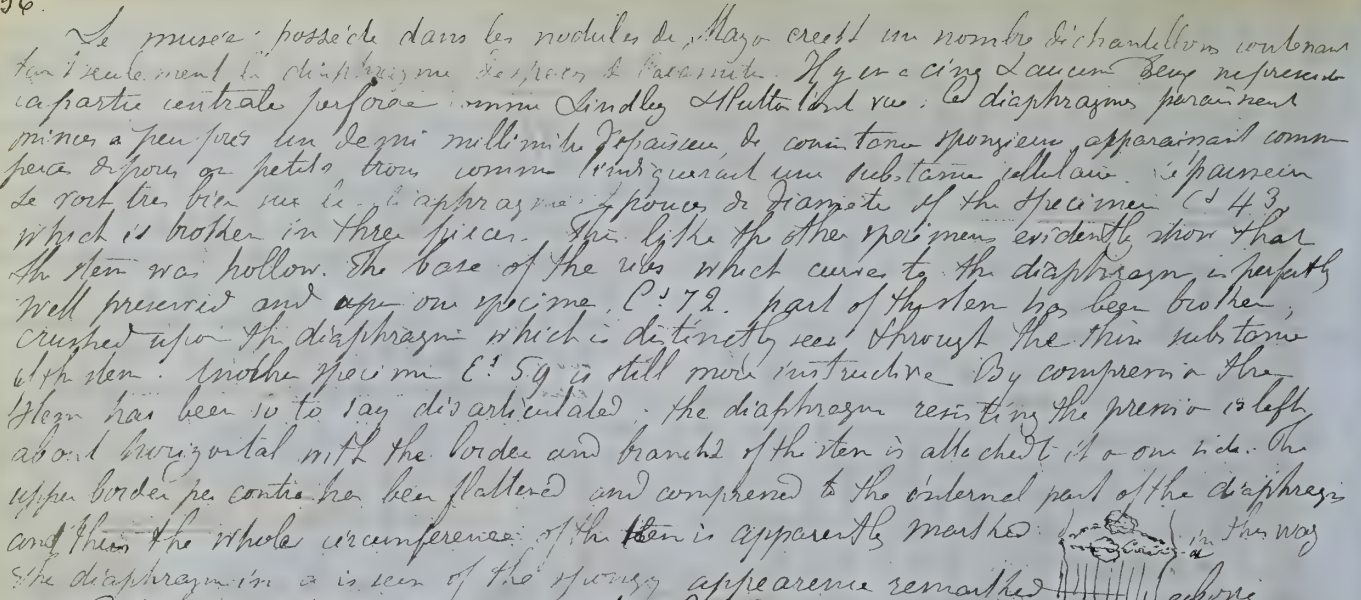 56.
Le musée possède dans les nodules de Mazo creek un nombre d'échantillons contenant
tout seulement le diaphragme Il y en a cinq Deux represent
la partie centrale perforée comme Lindley & Hutton l'ont vue. Ces diaphragmes paraissent
minces a peu près un demi millimetre d'epaisseur, de consistance spongieuse, apparaissant comme
percés de pores ou petits trous comme l'indiquerait une substance cellulaire. L'epaisseur
se voit tres bien sur le diaphragme pouces de diametre of the specimen Cs 43
which is broken in three pieces. This lyke the other specimens evidently show that
the stem was hollow. The base of the ribs which curves to the diaphragm is perfectly
well preserved and upon one specimen, Cs 72. part of the stem has been broken,
crushed upon the diaphragm which is distinctly seen through the thin substance
of the stem. Another specimen Es 59 is still more instructive By compression the
stem has been so to say disarticulated. the diaphragm resisting the pression is left
about horizontal with the border and branch of the stem is attached to it on one side. The
upper border per contra has been flattened and compressed to the internal part of the diaphragm
and then the whole circumference of the stem is apparently marked in this way
the diaphragm in a is seen of the spongy appearence remarked above
a